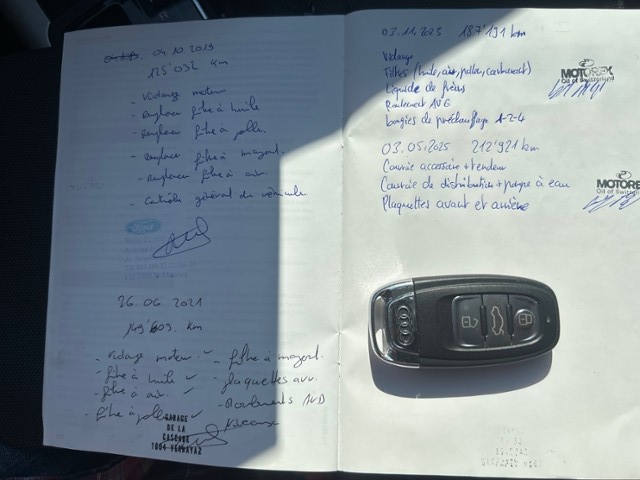 04.10.2019
125'032 km
- Vidange moteur
- Remplacer filtre à huile
- Remplacer filtre à pollen
- Remplacer filtre à mazout.
- Remplacer filtre à air
- Contrôle général du véhicule
Ford
26.06.2021
km
- Vidange moteur ✓
- filtre à huile ✓
- filtre à air ✓
- filtre à pollen ✓
- filtre à mazout.
- plaquettes
- Roulements AVD
GARAGE
DE LA
CASCADE
1904 VERNAYAZ
03.11.2023 187'191 km
Vidange
Filtres (huile, air, pollen, carburant)
Liquide de freins
Roulement AVG
bougies de préchauffage 1-2-4
MOTOREX
Oil of Switzerland
03.05.2025 212'921 km
Courroie accessoire + tendeur
Courroie de distribution + pompe à eau
Plaquettes avant et arrière
MOTOREX
Oil of Switzerland